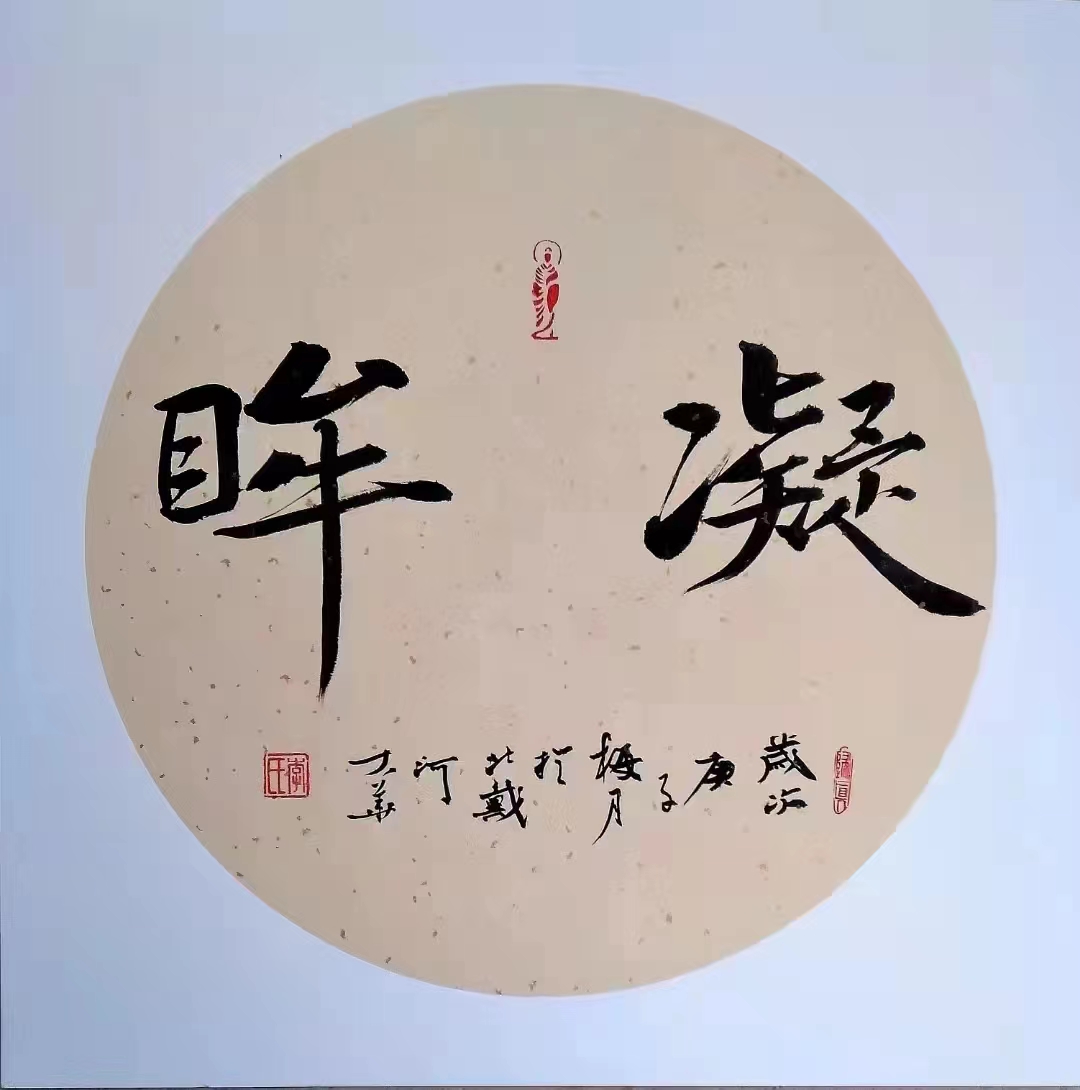 凝眸
歲次庚子梅月於北戴河大華
李氏